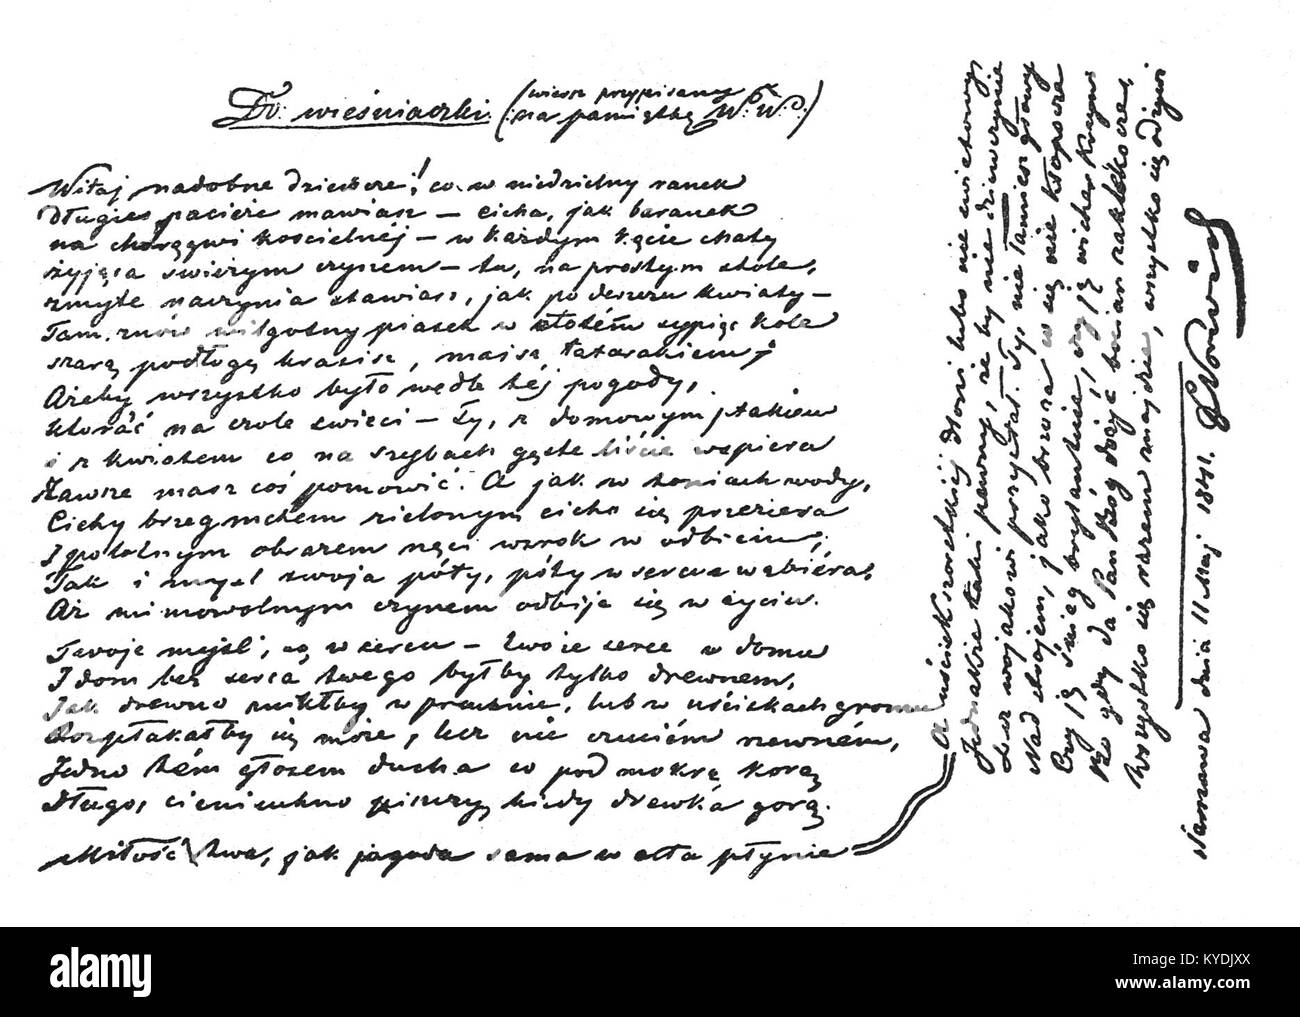 Do wieśniaczki. (wiersz przypisany
na pamiątkę W. W.:)
Witaj nadobne dziewcze! co w niedzielny ranek
Długie pacierze mawiasz – cicha, jak baranek
na chorągwi kościelnéj – w każdym kącie chaty
żyjąca świeżym czynem – tu, na prostym stole,
zmyte naczynia stawiasz, jak po deszczu kwiaty –
Tam znów wilgotny piasek w złotém sypiąc kole
szarą podłogę krasisz, maisz tatarakiem;
Ażeby wszystko było wedle téj pogody,
któráć na czole świeci – Ty, z domowym ptakiem
i z kwiatem co na szybach gęste liście wspiera
Zawsze masz cóś pomówić. A jak w toniach wody,
Cichy brzeg mchem zielonym cicho się przeziera
I polotnym obrazem nęci wzrok w odbiciu;
Tak i myśl twoja póty, póty w serce wabiéra,
Aż mimowolnym czynem odbije się w życiu.
Twoje myśl, są w sercu – twoje serce w domu
I dom bez serca twego byłby tylko drewnem,
Jak drewno nikłby w próchnie, lub w uściskach gromu
Rozpłakałby się może, lecz nie czuciém rzewném,
Jedno tém głosem ducha co pod mokrą korą
Długo, cieniuchno piszczy, kiedy drewka gorą.
Miłość twa, jak pogoda sama w akta płynie
A uścisk szorstkiéj dłoni lubo nie świetowy,
Jednakże taki pewny, że by nie dziewczynie
Lecz wojakowi przystał. Ty, nie łamiesz głowy
Nad strojem, jako burza co się nie kłopocze
Czy jéj śnieg brylantuje, czy jéj wicher kosym
Bo gdy da Pan Bóg dożyć bocian zaklekocze,
Wszystko się razem znajdzie, wszystko się odżywi
Warszawa dnia 11 Maj 1841. C Norwid
KYDJXX